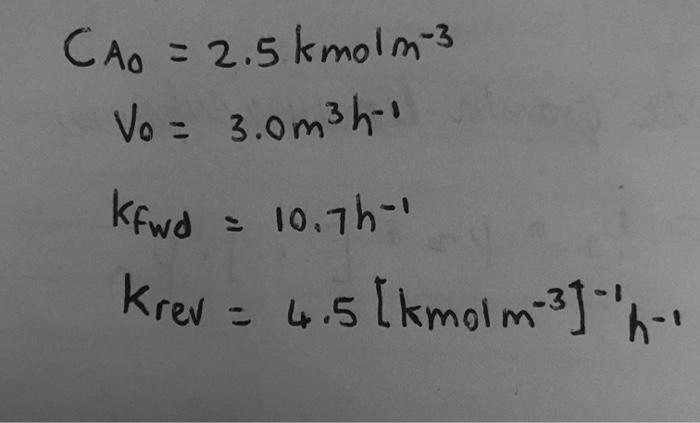 CA0 = 2.5 kmol m⁻³
V0 = 3.0 m³ h⁻¹
kfwd = 10.7 h⁻¹
krev = 4.5 [kmol m⁻³]⁻¹ h⁻¹